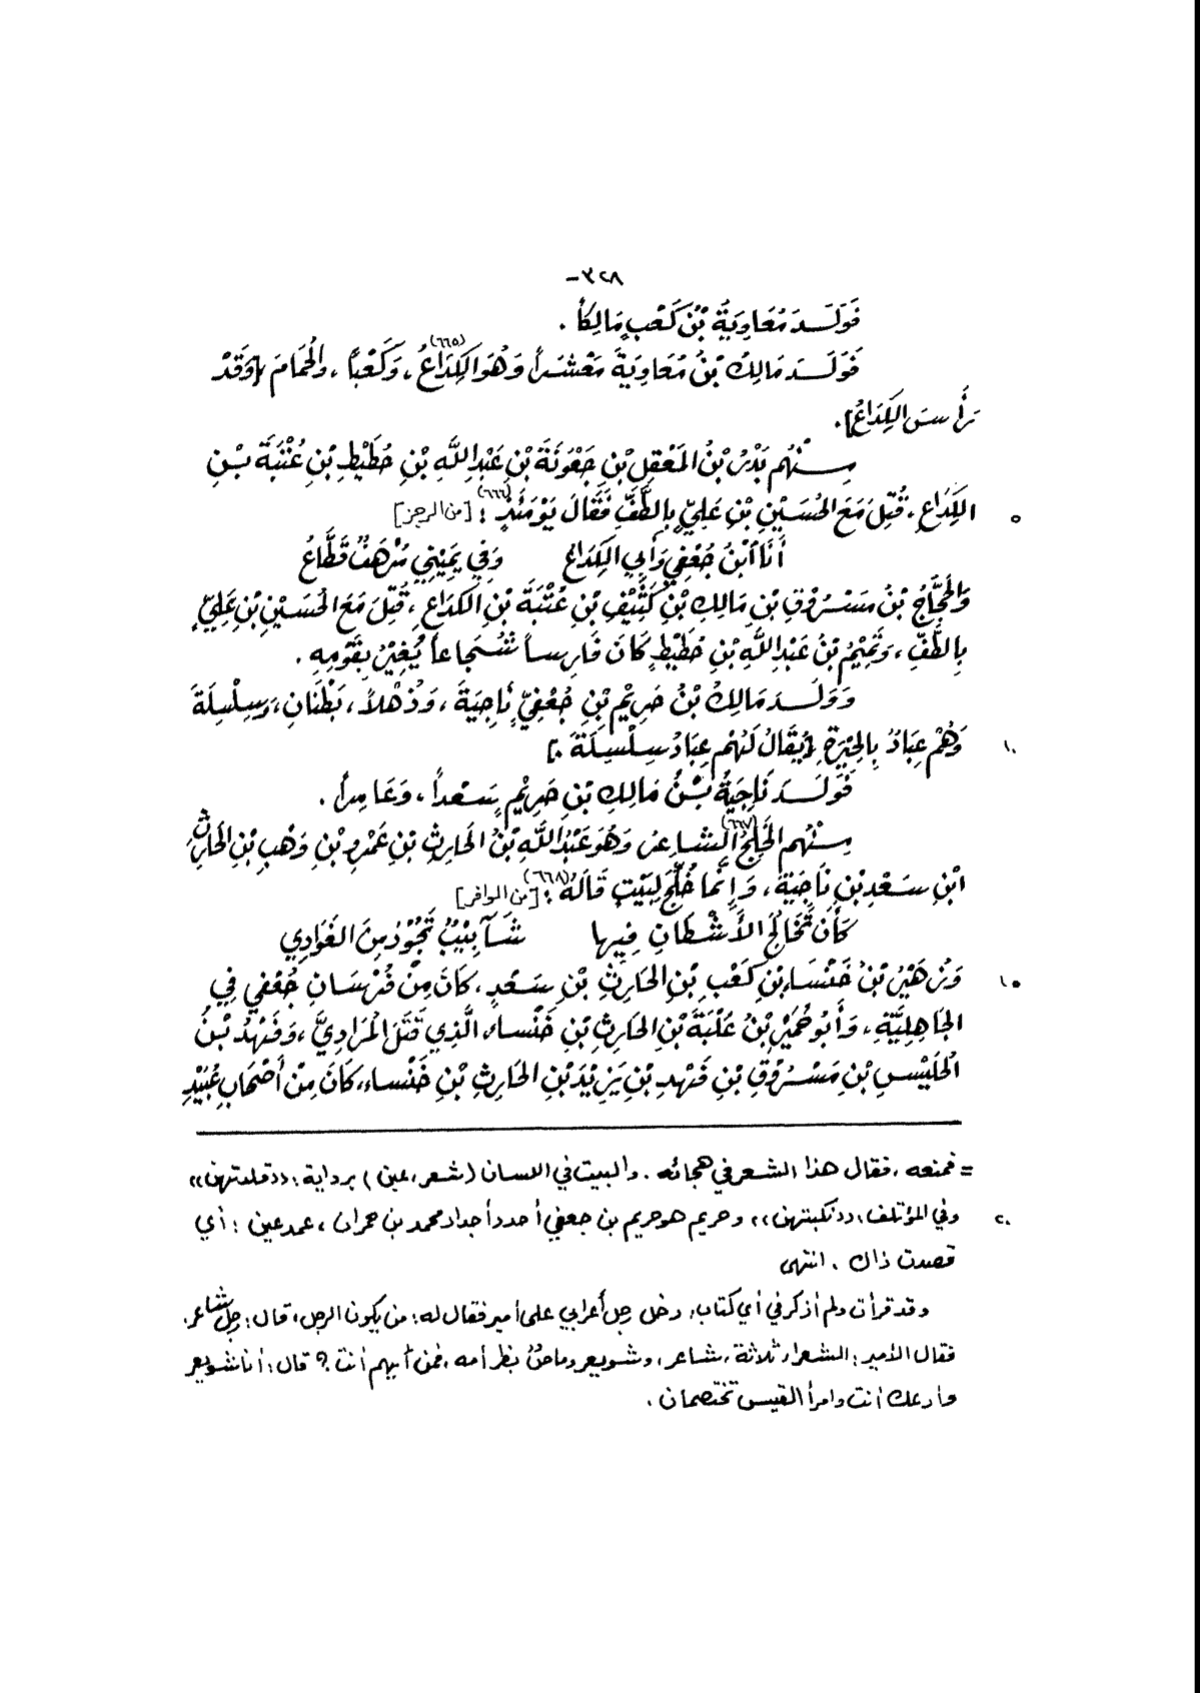 -٣٢٨-
فَوَلَدَ مُعَاوِيَةُ بْنُ كَعْبٍ مَالِكاً .
فَوَلَدَ مَالِكُ بْنُ مُعَاوِيَةَ مَعْشَراً وَهُوَ الكِدَاعُ(٦٦٥)، وَكَعْباً، والحُمَامَ [وَقَدْ
رَأَسَ الكِدَاعُ].
مِنْهُم بَدْرُ بْنُ المَعْقِلِ بْنِ جَعْوَنَةَ بْنِ عَبْدِ اللَّهِ بْنِ حُطَيْطِ بْنِ عُتْبَةَ بْنِ
٥ الكِدَاعِ، قُتِلَ مَعَ الحُسَيْنِ بْنِ عَلِيٍّ بِالطَّفِّ فَقَالَ يَوْمَئِذٍ(٦٦٦): [من الرجز]
أَنَا ابْنُ جُعْفِي وَأَبِي الكِدَاعُ وَفِي يَمِيْنِي مُرْهَفٌ قَطَّاعُ
وَالحَجَّاجُ بْنُ مَسْرُوْقِ بْنِ مَالِكِ بْنِ كَثِيْفِ بْنِ عُتْبَةَ بْنِ الكدَاعِ، قُتِلَ مَعَ الحُسَيْنِ بْنِ عَلِيٍّ
بِالطَّفِّ، وَتَمِيْمُ بْنُ عَبْدِ اللَّهِ بْنِ حُطَيْطٍ كَانَ فَارِساً شُجَاعاً يُغِيْرُ بِقَوْمِهِ .
وَوَلَدَ مَالِكُ بْنُ حَرِيْمِ بْنِ جُعْفِيٍّ نَاجِيَةَ، وَذُهْلاً، بَطْنَانِ، وَسِلْسِلَةَ
١٠ وَهُمْ عِبَادٌ بِالحِيْرَةِ [يُقَالُ لَهُمْ عِبَادُ سِلْسِلَةَ].
فَوَلَدَ نَاجِيَةُ بْنُ مَالِكِ بْنِ حَرِيْمٍ سَعْداً، وَعَامِراً .
مِنْهُم الخَلِجُ(٦٦٧) الشاعِرُ وَهُوَ عَبْدُ اللَّهِ بْنُ الحَارِثِ بْنِ عَمْرِو بْنِ وَهْبِ بْنِ الحَارِثِ
ابْنِ سَعْدِ بْنِ نَاجِيَةَ، وَإِنَّمَا خُلِّجَ لِبَيْتٍ قَالَهُ(٦٦٨): [من الوافر]
كَأَنَّ تَخَالُجَ الأَشْطَانِ فِيها شَآبِيْبٌ تَجُوْدُ مِنَ الغَوَادِي
١٥ وَزُهَيْرُ بْنُ خَنْسَاءَ بْنِ كَعْبِ بْنِ الحَارِثِ بْنِ سَعْدٍ، كَانَ مِنْ فُرْسَانِ جُعْفِي فِي
الجَاهِلِيَّةِ، وَأَبُو حُمَيْرِ بْنُ عُلْبَةَ بْنِ الحَارِثِ بْنِ خَنْساء الَّذِي قَتَلَ المُرَادِيَّ، وَفَهْدُ بْنُ
الحُلَيْسِ بْنِ مَسْرُوْقِ بْنِ فَهْدِ بْنِ يَزِيْدَ بْنِ الحَارِثِ بْنِ خَنْساء، كَانَ مِنْ أَصْحَابِ عُبَيْدِ
= فمنعه، فقال هذا الشعر في هجائه. والبيت في اللسان (شعر، عين) برواية: ((قلدتهن))
٢٠ وفي المؤتلف، ((نكبتهن))، وحريم هو حريم بن جعفي أحد أجداد محمد بن حمران، عمد عين: أي
قصدت ذاك . انتهى
وقد قرأت ولم أذكر في أي كتاب، دخل رجل أعرابي على أمير فقال له: من يكون الرجل، قال: رجل شاعر.
فقال الأمير: الشعراء ثلاثة، شاعر، وشويعر وماصّ بظر أمه، فمن أيهم أنت؟ قال: أنا شويعر
وأدعك أنت وامرأ القيس تختصمان .